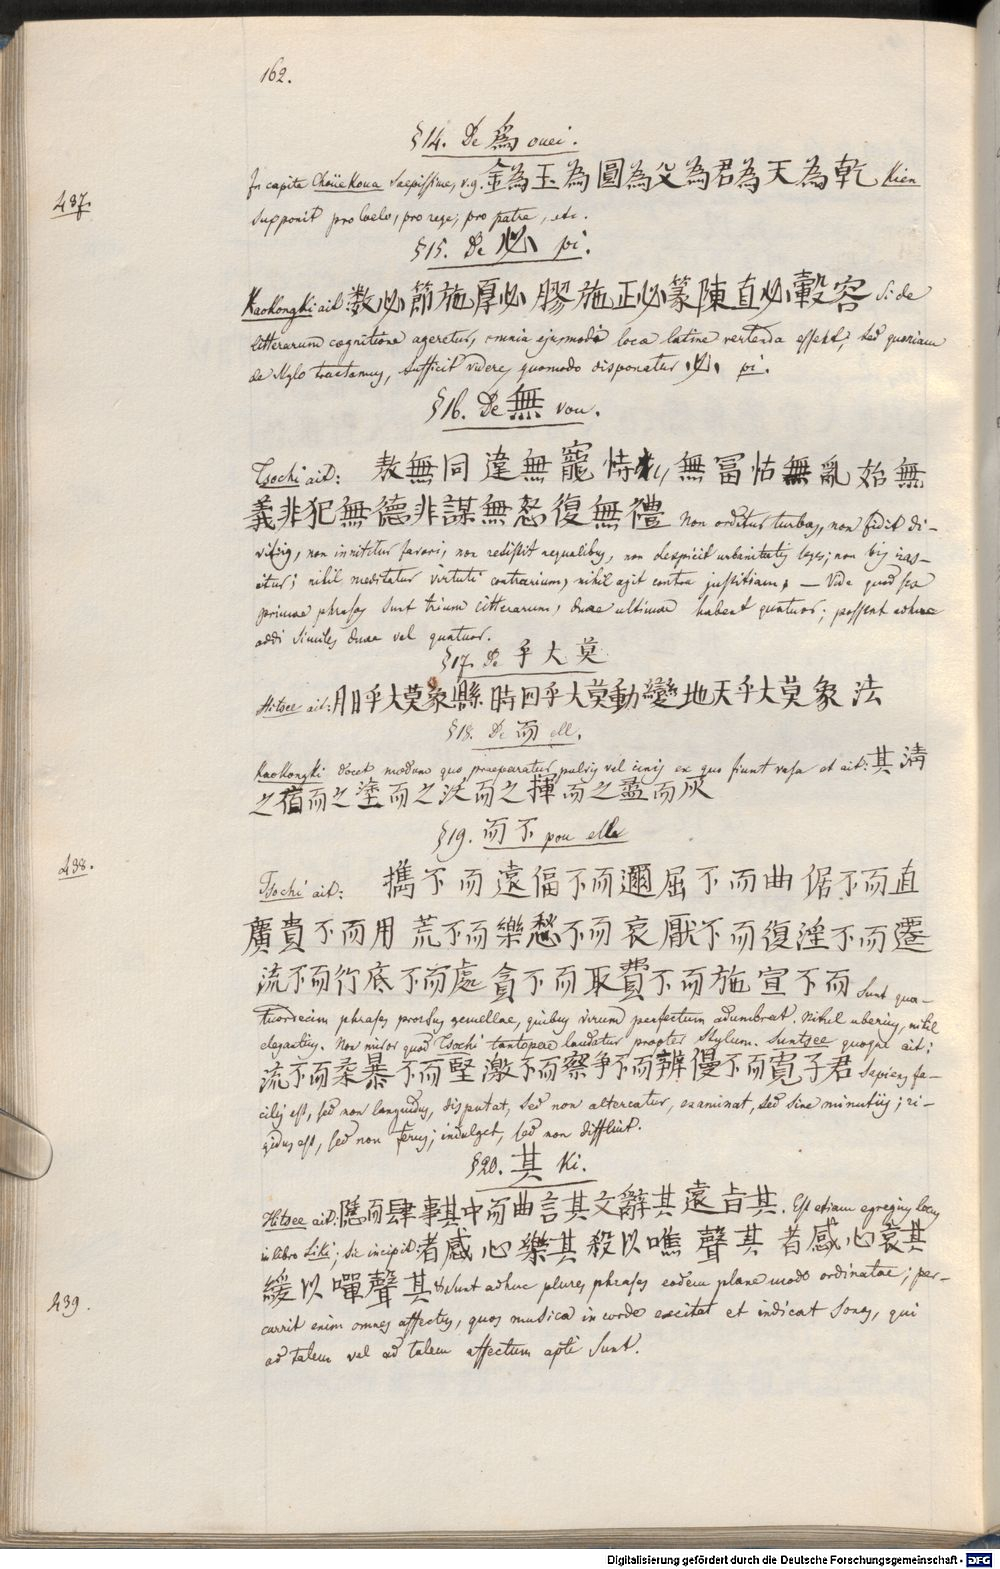 162.
§14. De 爲 ouei.
437.
In capite Choüe Koua saepissime, v.g. 金為玉為圓為父為君為天為乾 Kien
supponit pro coelo, pro rege, pro patre, etc.
§15. De 必 pi.
Kaokongki ait 数必節施厚必膠施正必篆陳直必轂容 Si de
litterarum cognitione ageretur, omnia ejusmodi loca latine vertenda essent; sed quoniam
de stylo tractamus, sufficit videre, quomodo disponatur 必 pi.
§16. De 無 vou.
Tsochi ait: 敖無同違無寵恃無冨怙無亂始無
義非犯無德非謀無怒復無禮 Non orditur turbas, non fidit di-
vitiis, non innititur favori, non resistit aequalibus, non despicit urbanitatis leges; non bis iras-
citur; nihil meditatur virtuti contrarium, nihil agit contra justitiam. — Vide quod sex
primae phrases sunt trium litterarum, duae ultimae habent quatuor; possent adhuc
addi similes duae vel quatuor.
§17. De 乎大莫
Hitsee ait: 月日乎大莫象縣時四乎大莫動變地天乎大莫象法
§18. De 而 ell.
Kaokongki docet modum quo praeparatur pulvis vel cinis ex quo fiunt vasa et ait: 其清
之宿而之塗而之沃而之揮而之盝而灰
§19. 而不 pou ell
438.
Tsochi ait: 攜不而遠偪不而邇屈不而曲倨不而直
廣貴不而用荒不而樂愁不而哀厭不而復淫不而遷
流不而行底不而處貪不而取費不而施宣不而 Sunt qua-
tuordecim phrases prorsus gemellae, quibus virum perfectum adumbrat. Nihil uberius, nihil
elegantius. Non miror quod Tsochi tantopere laudatur propter stylum. Suntsee quoque ait:
流不而柔暴不而堅激不而察争不而辨僈不而寬子君 Sapiens fa-
cilis est, sed non languidus, disputat, sed non altercatur, examinat, sed sine minutiis; ri-
gidus est, sed non ferus; indulget, sed non diffluit.
§20. 其 Ki.
Hitsee ait: 隱而肆事其中而曲言其文辭其遠旨其. Est etiam egregius locus
in libro Liki; sic incipit: 者感心樂其殺以噍聲其者感心哀其
439.
緩以嘽聲其 Sunt adhuc plures phrases eodem plane modo ordinatae; per-
currit enim omnes affectus, quos musica in corde excitat et indicat sonos, qui
ad talem vel ad talem affectum apti sunt.
Digitalisierung gefördert durch die Deutsche Forschungsgemeinschaft - DFG